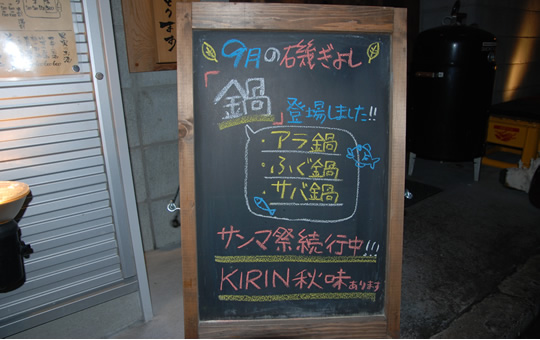 9月の磯ぎよし
「鍋」登場しました!!
・アラ鍋
・ふぐ鍋
・サバ鍋
サンマ祭続行中!!!
KIRIN秋味あります